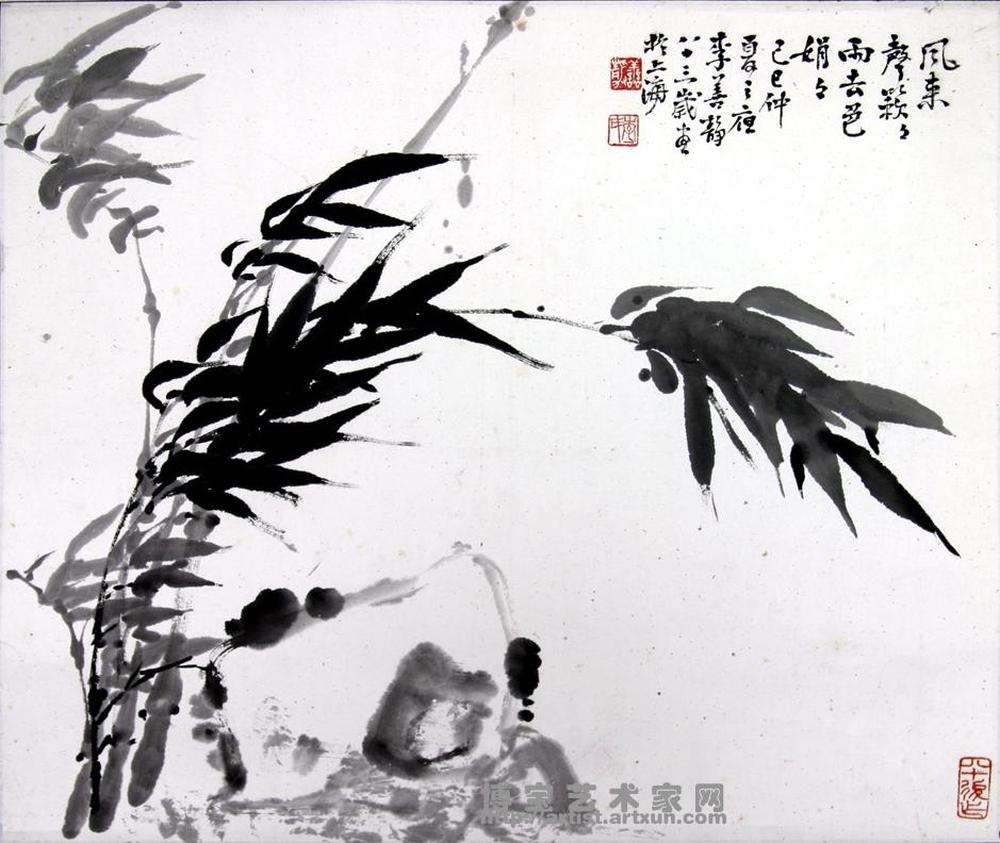 風來
聲簌々
雨去邑
娟々
己巳仲
夏之夜
李善靜
八十三歲画
於上海
博宝艺术家网
http://artist.artxun.com